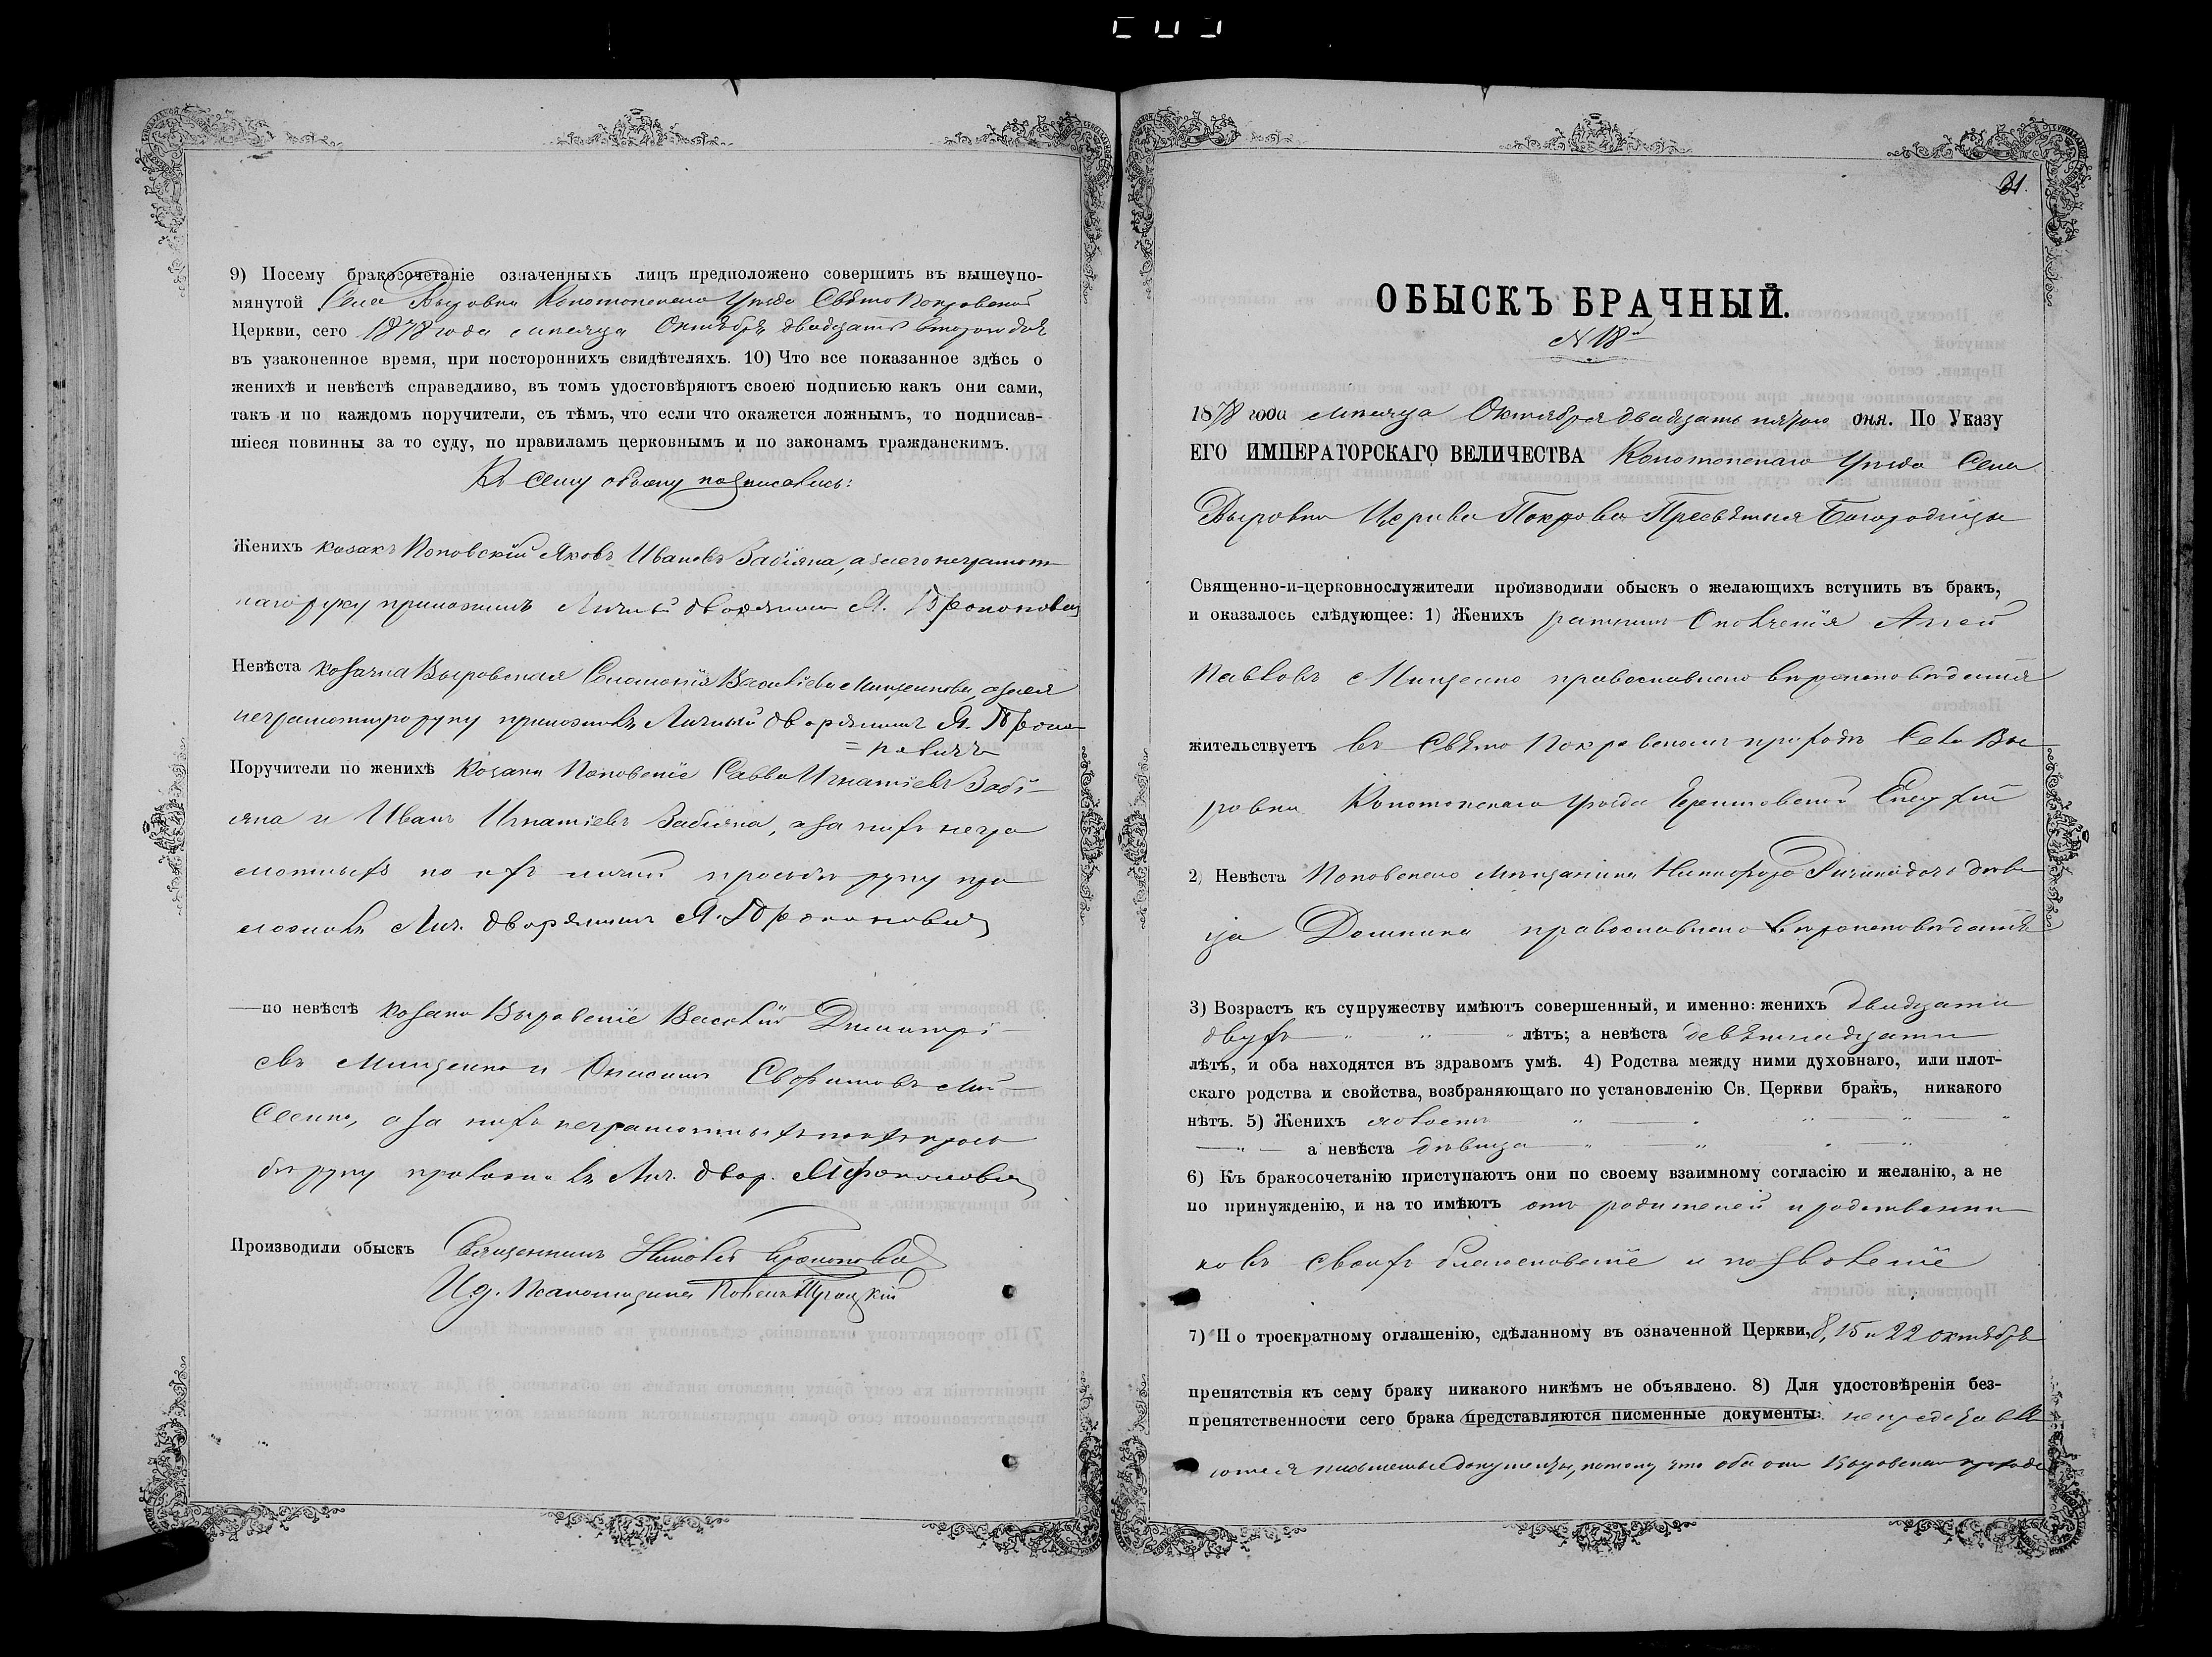 9) Посему бракосочетаніе означенныхъ лицъ предположено совершить въ вышеупо-
мянутой Села Выровки Конотопскаго Уѣзда Свято Покровской
Церкви, сего 1878 года мѣсяца Октября двадцать втораго дня
въ узаконенное время, при постороннихъ свидѣтеляхъ. 10) Что все показанное здѣсь о
женихѣ и невѣстѣ справедливо, въ томъ удостовѣряютъ своею подписью какъ они сами,
такъ и по каждомъ поручители, съ тѣмъ, что если что окажется ложнымъ, то подписав-
шіеся повинны за то суду, по правиламъ церковнымъ и по законамъ гражданскимъ.
Къ сему обыску подписались:
Женихъ козакъ Поповскій Яковъ Ивановъ Забіяка, а за него неграмот-
наго руку приложилъ Личный дворянинъ Я.
Невѣста козачка Выровская Василіева Мищенкова, а за нея
неграмотную руку приложилъ Личный дворянинъ Я.
Поручители по женихѣ Козаки Поповскіе Савва Игнатіевъ Забі-
яка и Иванъ Игнатіевъ Забіяка, а за нихъ негра
мотныхъ по ихъ личной просьбѣ руку при
ложилъ Лич. дворянинъ Я.
—по невѣстѣ козаки Выровскіе Василій Димитрі-
евъ Мищенко и Онисимъ
а за нихъ неграмотныхъ по ихъ прось
бѣ руку приложилъ Лич. двор.
Производили обыскъ Священникъ Николай
И. д. Псаломщика Троицкій
31.
ОБЫСКЪ БРАЧНЫЙ.
N 18й
1878 года мѣсяца Октября двадцать пятого дня. По Указу
ЕГО ИМПЕРАТОРСКАГО ВЕЛИЧЕСТВА Конотопскаго Уѣзда Села
Выровки Церкви Покрова Пресвятыя Богородицы
Священно-и-церковнослужители производили обыскъ о желающихъ вступить въ бракъ,
и оказалось слѣдующее: 1) Женихъ ратникъ Ополченія
Павловъ Мищенко православнаго вѣроисповѣданія
жительствуетъ въ Свято Покровскомъ приходѣ Села Вы
ровки Конотопскаго Уѣзда Черниговской Епархіи
2) Невѣста Поповскаго мѣщанина Никифора дѣви
ца Домника православнаго вѣроисповѣданія
3) Возрастъ къ супружеству имѣютъ совершенный, и именно: женихъ двадцати
двухъ лѣтъ; а невѣста девятнадцати
лѣтъ, и оба находятся въ здравомъ умѣ. 4) Родства между ними духовнаго, или плот-
скаго родства и свойства, возбраняющаго по установленію Св. Церкви бракъ, никакого
нѣтъ. 5) Женихъ холостъ
а невѣста дѣвица
6) Къ бракосочетанію приступаютъ они по своему взаимному согласію и желанію, а не
по принужденію, и на то имѣютъ отъ родителей и родственни
ковъ своихъ благословеніе и позволеніе
7) По троекратному оглашенію, сдѣланному въ означенной Церкви, 8, 15 и 22 октября
препятствія къ сему браку никакого никѣмъ не объявлено. 8) Для удостовѣренія без-
препятственности сего брака представляются писменные документы: непредставля
ются письменые документы, потому что оба они Выровскаго прихода